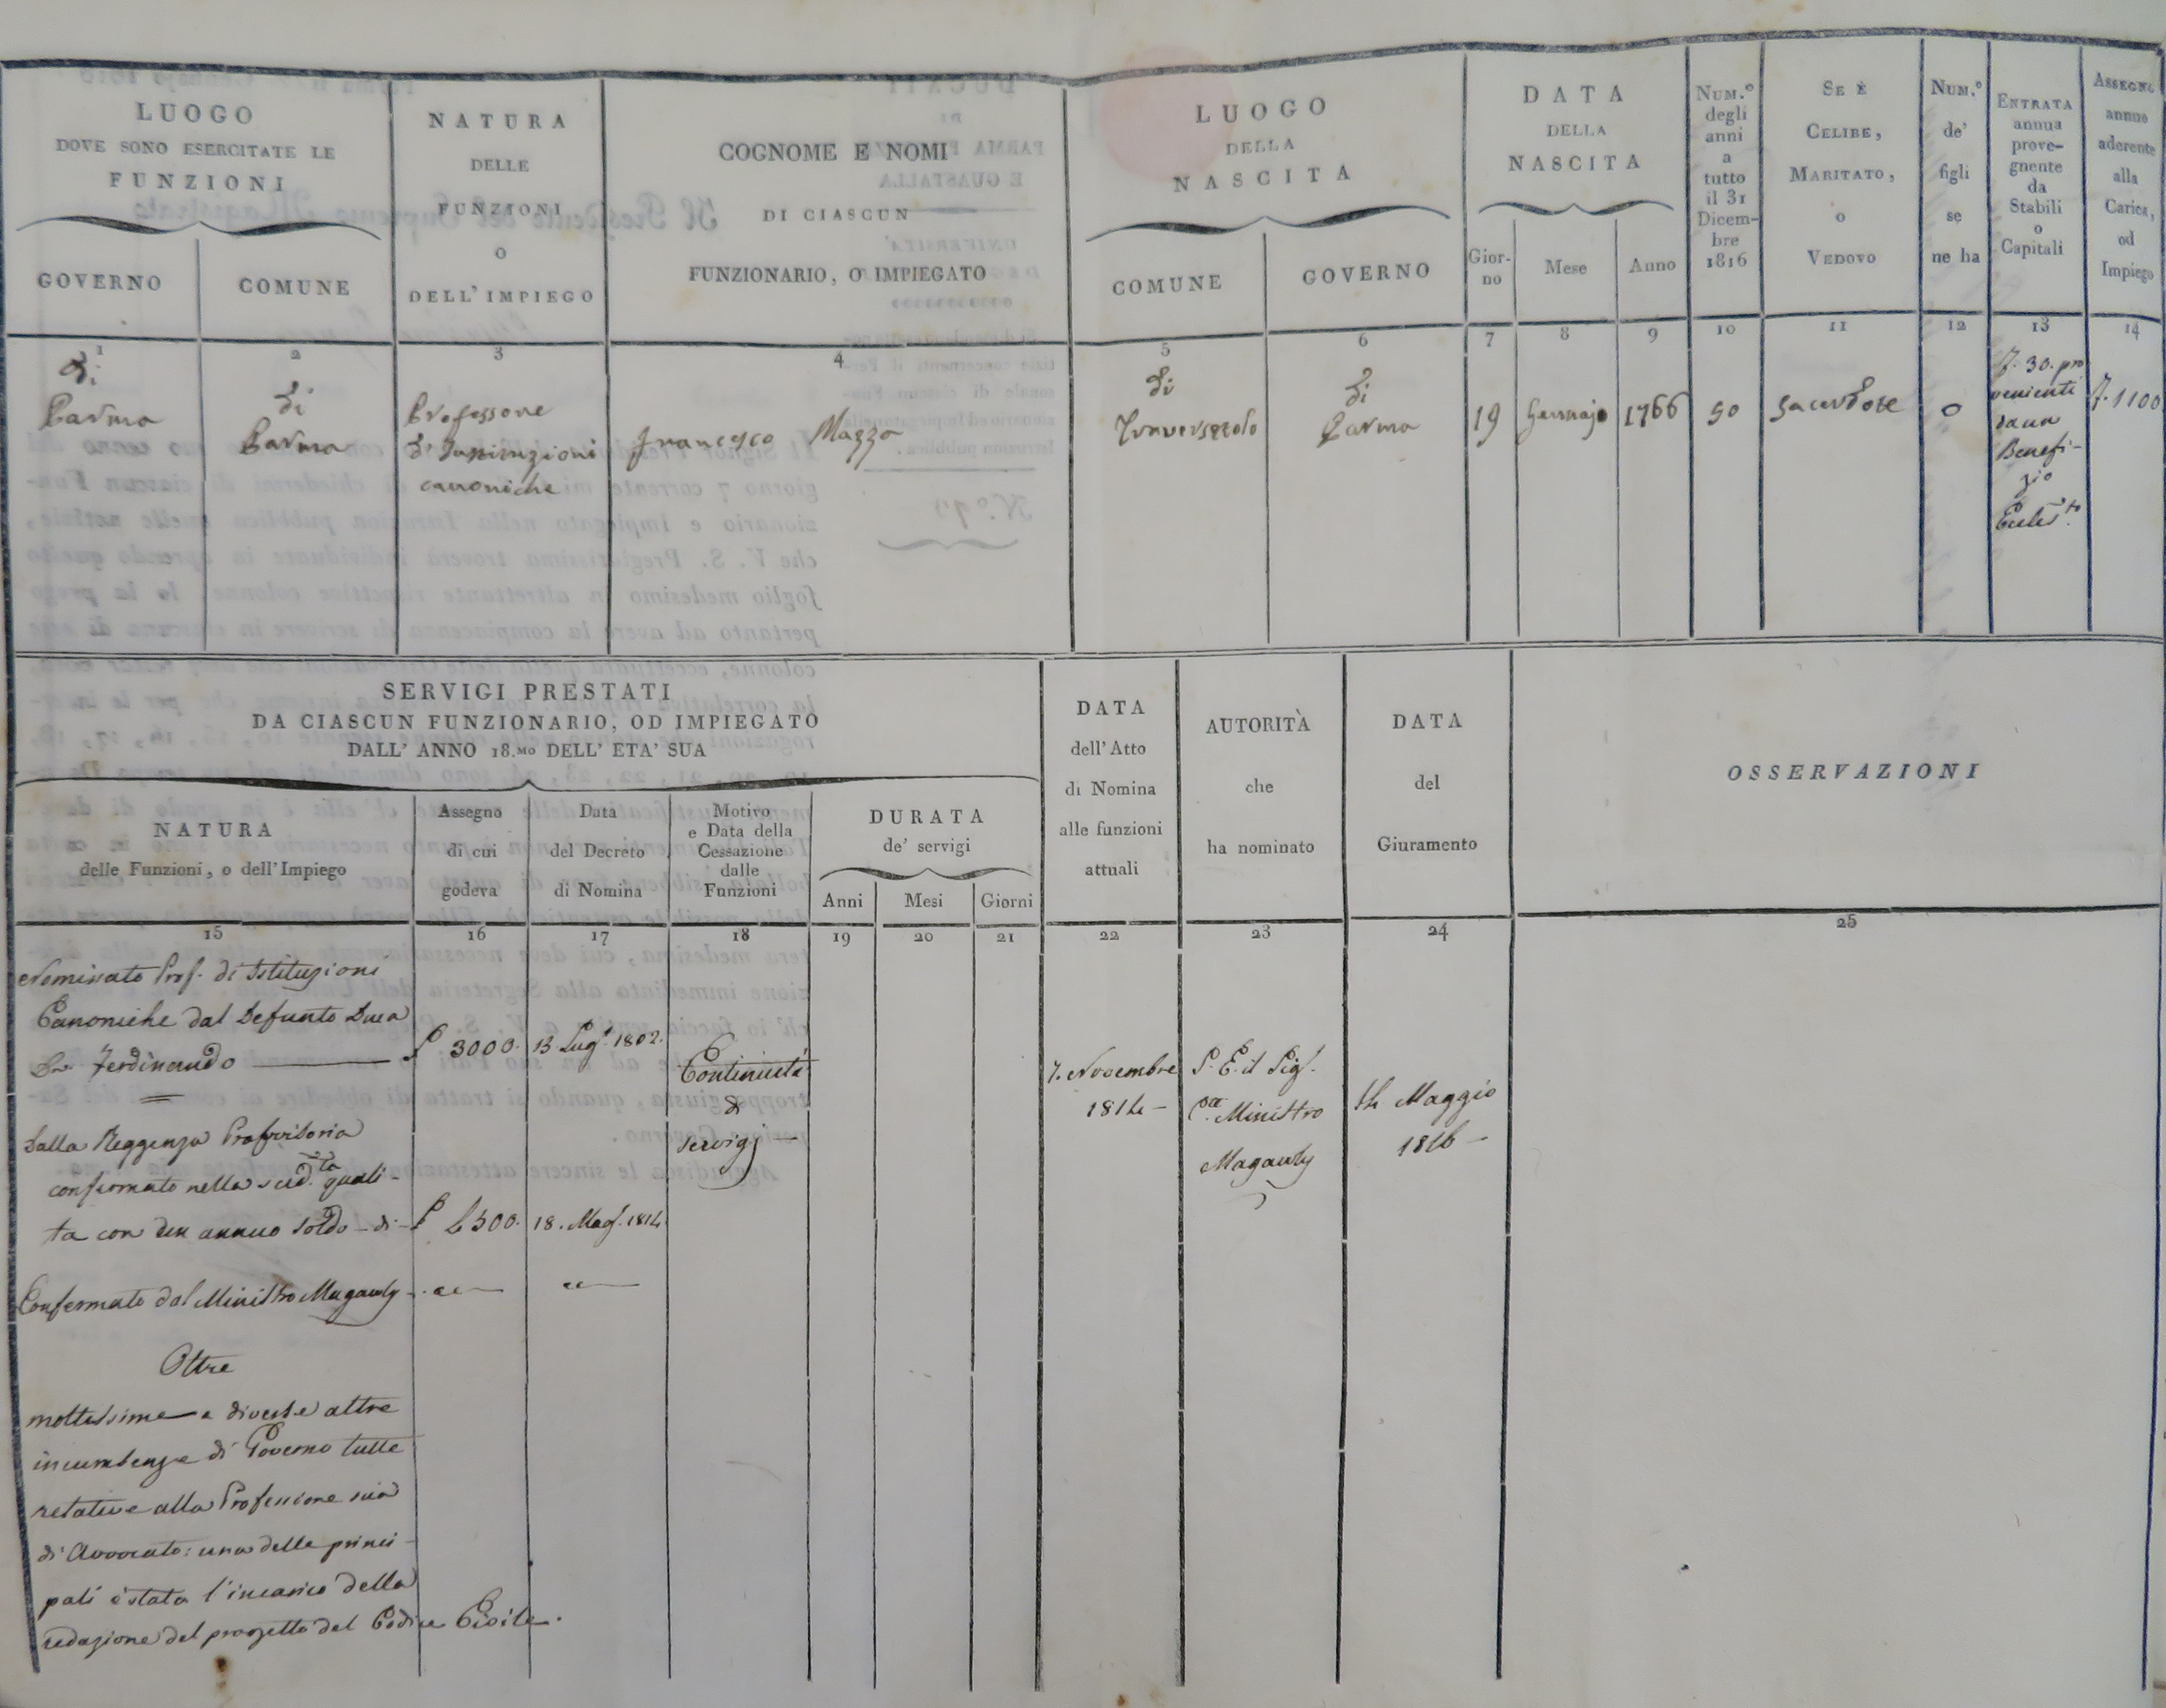 LUOGO
DOVE SONO ESERCITATE LE
FUNZIONI
GOVERNO
COMUNE
NATURA
DELLE
FUNZIONI
O
DELL' IMPIEGO
COGNOME E NOMI
DI CIASCUN
FUNZIONARIO, O IMPIEGATO
LUOGO
DELLA
NASCITA
COMUNE
GOVERNO
DATA
DELLA
NASCITA
Gior-
no
Mese
Anno
NUM.º
degli
anni
a
tutto
il 31
Dicem-
bre
1816
SE È
CELIBE,
MARITATO,
O
VEDOVO
NUM.º
de'
figli
se
ne ha
ENTRATA
annua
prove-
gnente
da
Stabili
o
Capitali
ASSEGNO
annuo
aderente
alla
Carica,
od
Impiego
1
2
3
4
5
6
7
8
9
10
11
12
13
14
di
Parma
di
Parma
Professore
d'Instituzioni
canoniche
Francesco Mazza
di
Traversetolo
di
Parma
19
Gennajo
1766
50
Sacerdote
0
f. 30. pro
venienti
da un
Benefi-
zio
f. 1100
SERVIGI PRESTATI
DA CIASCUN FUNZIONARIO, OD IMPIEGATO
DALL' ANNO 18.MO DELL' ETA' SUA
NATURA
delle Funzioni, o dell'Impiego
Assegno
di cui
godeva
Data
del Decreto
di Nomina
Motivo
e Data della
Cessazione
dalle
Funzioni
DURATA
de' servigi
Anni
Mesi
Giorni
DATA
dell' Atto
di Nomina
alle funzioni
attuali
AUTORITÀ
che
ha nominato
DATA
del
Giuramento
OSSERVAZIONI
15
16
17
18
19
20
21
22
23
24
25
Nominato Prof. di Istituzioni
Canoniche dal Defunto Duca
Dn. Ferdinando
3000.
13 Lug. 1802.
Dalla Reggenza Provvisoria
confermato nella sud.ta quali-
ta con un annuo soldo di
18. Mag. 1814
Confermato dal Ministro Magawly
Oltre
moltissime e diverse altre
incumbenze di Governo tutte
relative alla Professione sua
di Avvocato: una delle princi-
pali è stata l'incarico della
redazione del progetto del Codice Civile.
Continuità
di
servigj
7. Novembre
1814
S. E. il Sig.
Ministro
Magawly
14 Maggio
1816